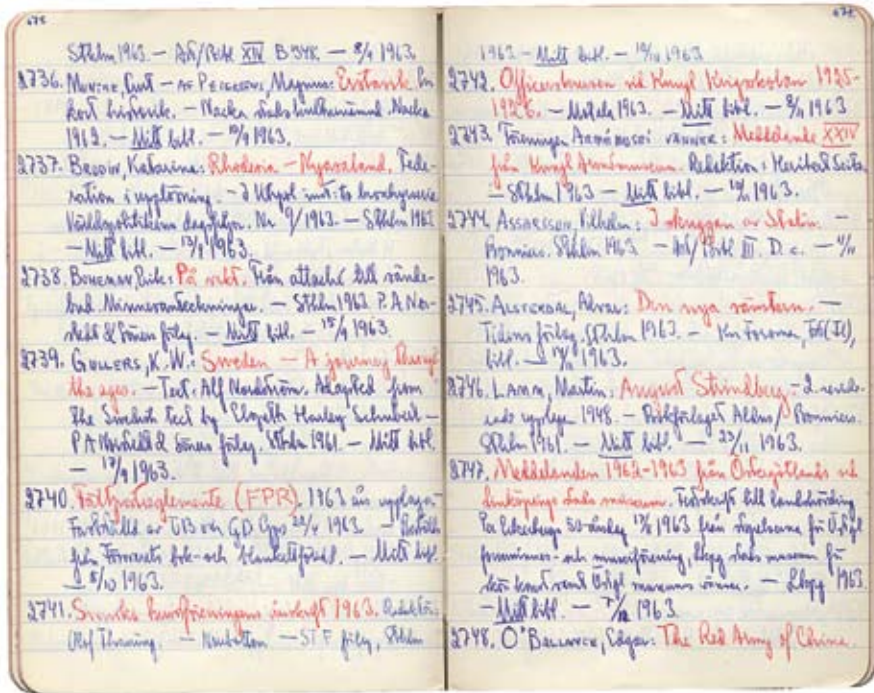 671
Sthlm 1963. — XIV — 8/9 1963
2736. Magnus:
kort historik. — Nacka Nacka
1962. — Mitt bibl. — 1963.
2737. Brodin, Katarina: Rhodesia — Nyasaland. Fede-
ration i upplösning. —
Världspolitikens dagsfrågor. Nr 9/1963. — Sthlm 1963
— Mitt bibl. — 13/9 1963.
2738. Boheman, Erik: På vakt. Från attaché till sände-
bud. Minnesanteckningar. — Sthlm 1963. P.A. Nor-
stedt & Söners förlag. — Mitt bibl. — 15/9 1963.
2739. Gullers, K.W.: Sweden — A journey through
the ages. — Text: Alf Nordström. Adapted from
the Swedish text by Elspeth Harley Schubert —
P A Norstedt & Söners förlag. Sthlm 1961. — Mitt bibl.
— 17/9 1963.
2740. Fältpostreglemente (FPR). 1963 års upplaga.
Fastställd av ÖB och GD 1963. —
från Försvarets bok- och blankettförråd. — Mitt bibl.
— 8/10 1963.
2741. Svenska turistföreningens årsskrift 1963. Redaktör:
Olof Thaning. — — STF förlag, Sthlm
672
1963 — Mitt bibl. — 1963
2742. Officerskursen vid Kungl Krigsskolan 1925-
1926. — Motala 1963. — Mitt bibl. — 1963
2743. Föreningen Armémusei vänner: Meddelande XXIV
från Kungl Armémuseum. Redaktion: Heribert Seitz
— Sthlm 1963 — Mitt bibl. — 1963.
2744. Assarsson, Vilhelm: I skuggan av Stalin. —
Bonniers. Sthlm 1963. — III. D. c. —
1963.
2745. Alsterdal, Alvar: Den nya vänstern. —
Tidens förlag, Sthlm 1963. —
bibl. — 1963.
2746. Lamm, Martin: August Strindberg. — 2. revide-
rade upplagan 1948. — Bokförlaget Aldus/Bonniers.
Sthlm 1961. — Mitt bibl. — 23/11 1963.
2747. Meddelanden 1962-1963 från Östergötlands och
Linköpings stads museum. till landshövding
Per Eckerberg 50-årsdag 1963 från
fornminnes- och museiförening, stads museum för
museums vänner. — Lkpg 1963
— Mitt bibl. — 1963.
2748. O'Ballance, Edgar: The Red Army of China.